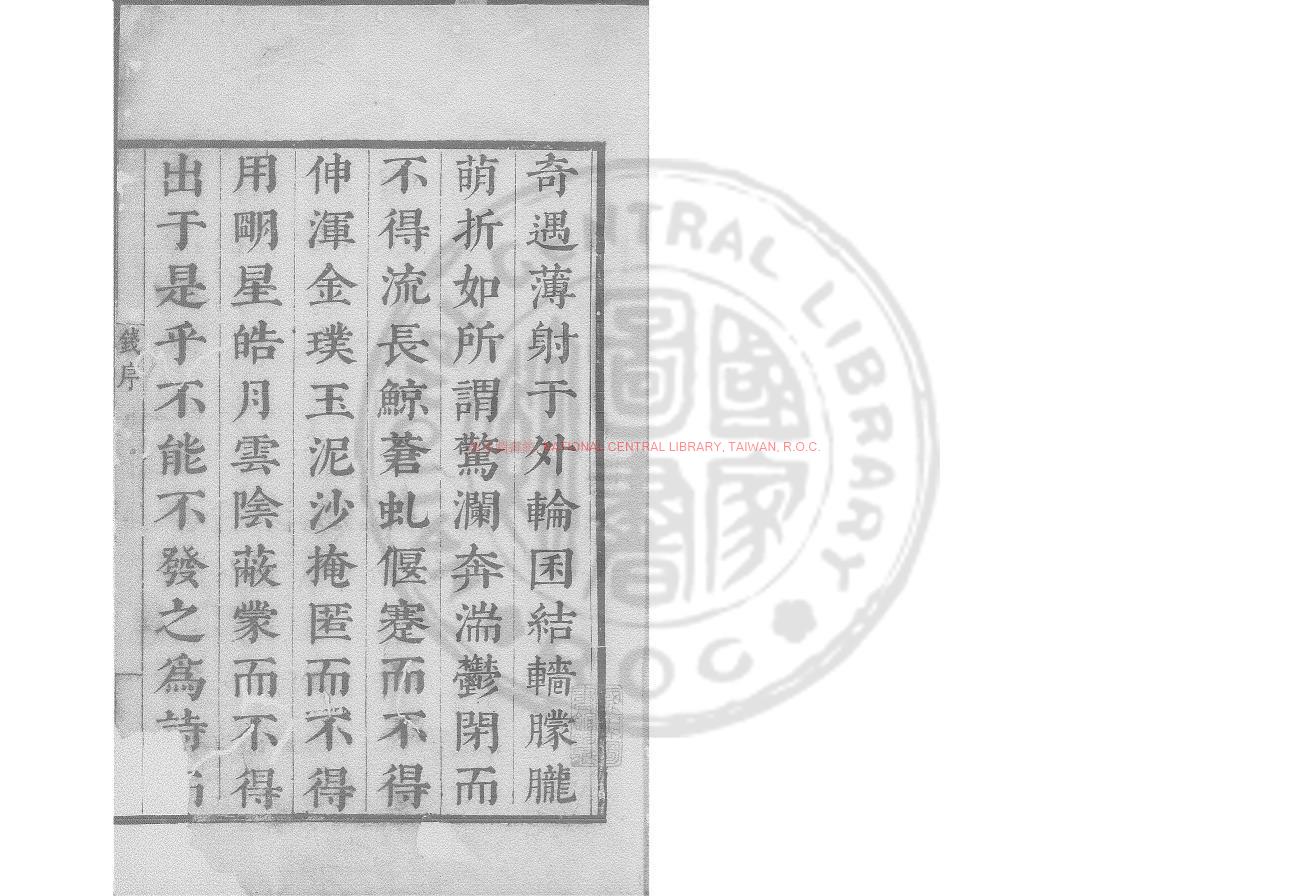 奇遇薄射于外輪囷結轖朦朧
萌折如所謂驚瀾奔湍鬱閉而
不得流長鯨蒼虬偃蹇而不得
伸渾金璞玉泥沙掩匿而不得
用明星皓月雲陰蔽蒙而不得
出于是乎不能不發之為詩
錢序
NATIONAL CENTRAL LIBRARY, TAIWAN, R.O.C.